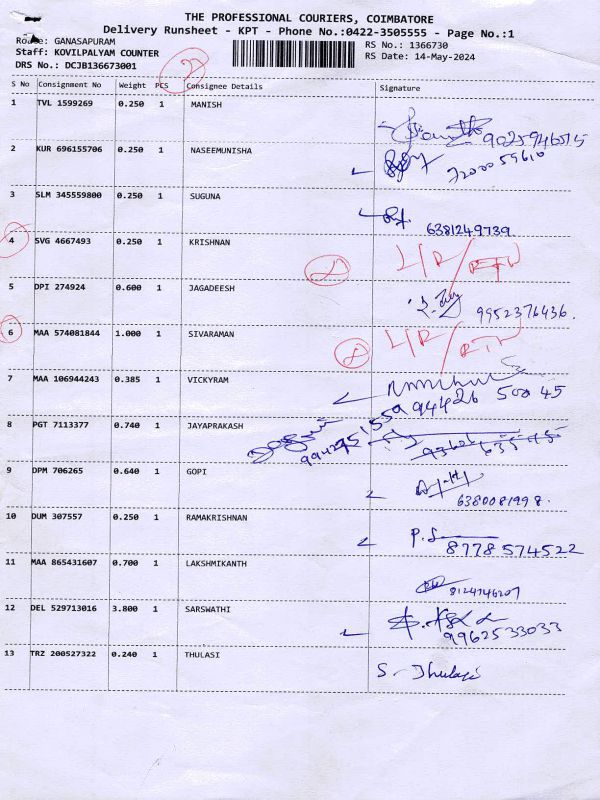 THE PROFESSIONAL COURIERS, COIMBATORE
Delivery Runsheet - KPT - Phone No.:0422-3505555 - Page No.:1
Route: GANASAPURAM
Staff: KOVILPALYAM COUNTER
DRS No.: DCJB136673001
RS No.: 1366730
RS Date: 14-May-2024
S No Consignment No Weight PCS Consignee Details Signature
1 TVL 1599269 0.250 1 MANISH 9025946515
2 KUR 696155706 0.250 1 NASEEMUNISHA 7200055610
3 SLM 345559800 0.250 1 SUGUNA 6381249739
4 SVG 4667493 0.250 1 KRISHNAN L/R/RTN
5 DPI 274924 0.600 1 JAGADEESH 9952376436.
6 MAA 574081844 1.000 1 SIVARAMAN L/R/RTN
7 MAA 106944243 0.385 1 VICKYRAM 94426 50045
8 PGT 7113377 0.740 1 JAYAPRAKASH
9 DPM 706265 0.640 1 GOPI 6380081998.
10 DUM 307557 0.250 1 RAMAKRISHNAN P.S 8778574522
11 MAA 865431607 0.700 1 LAKSHMIKANTH 8124746207
12 DEL 529713016 3.800 1 SARSWATHI 9962533033
13 TRZ 200527322 0.240 1 THULASI S. Thulasi